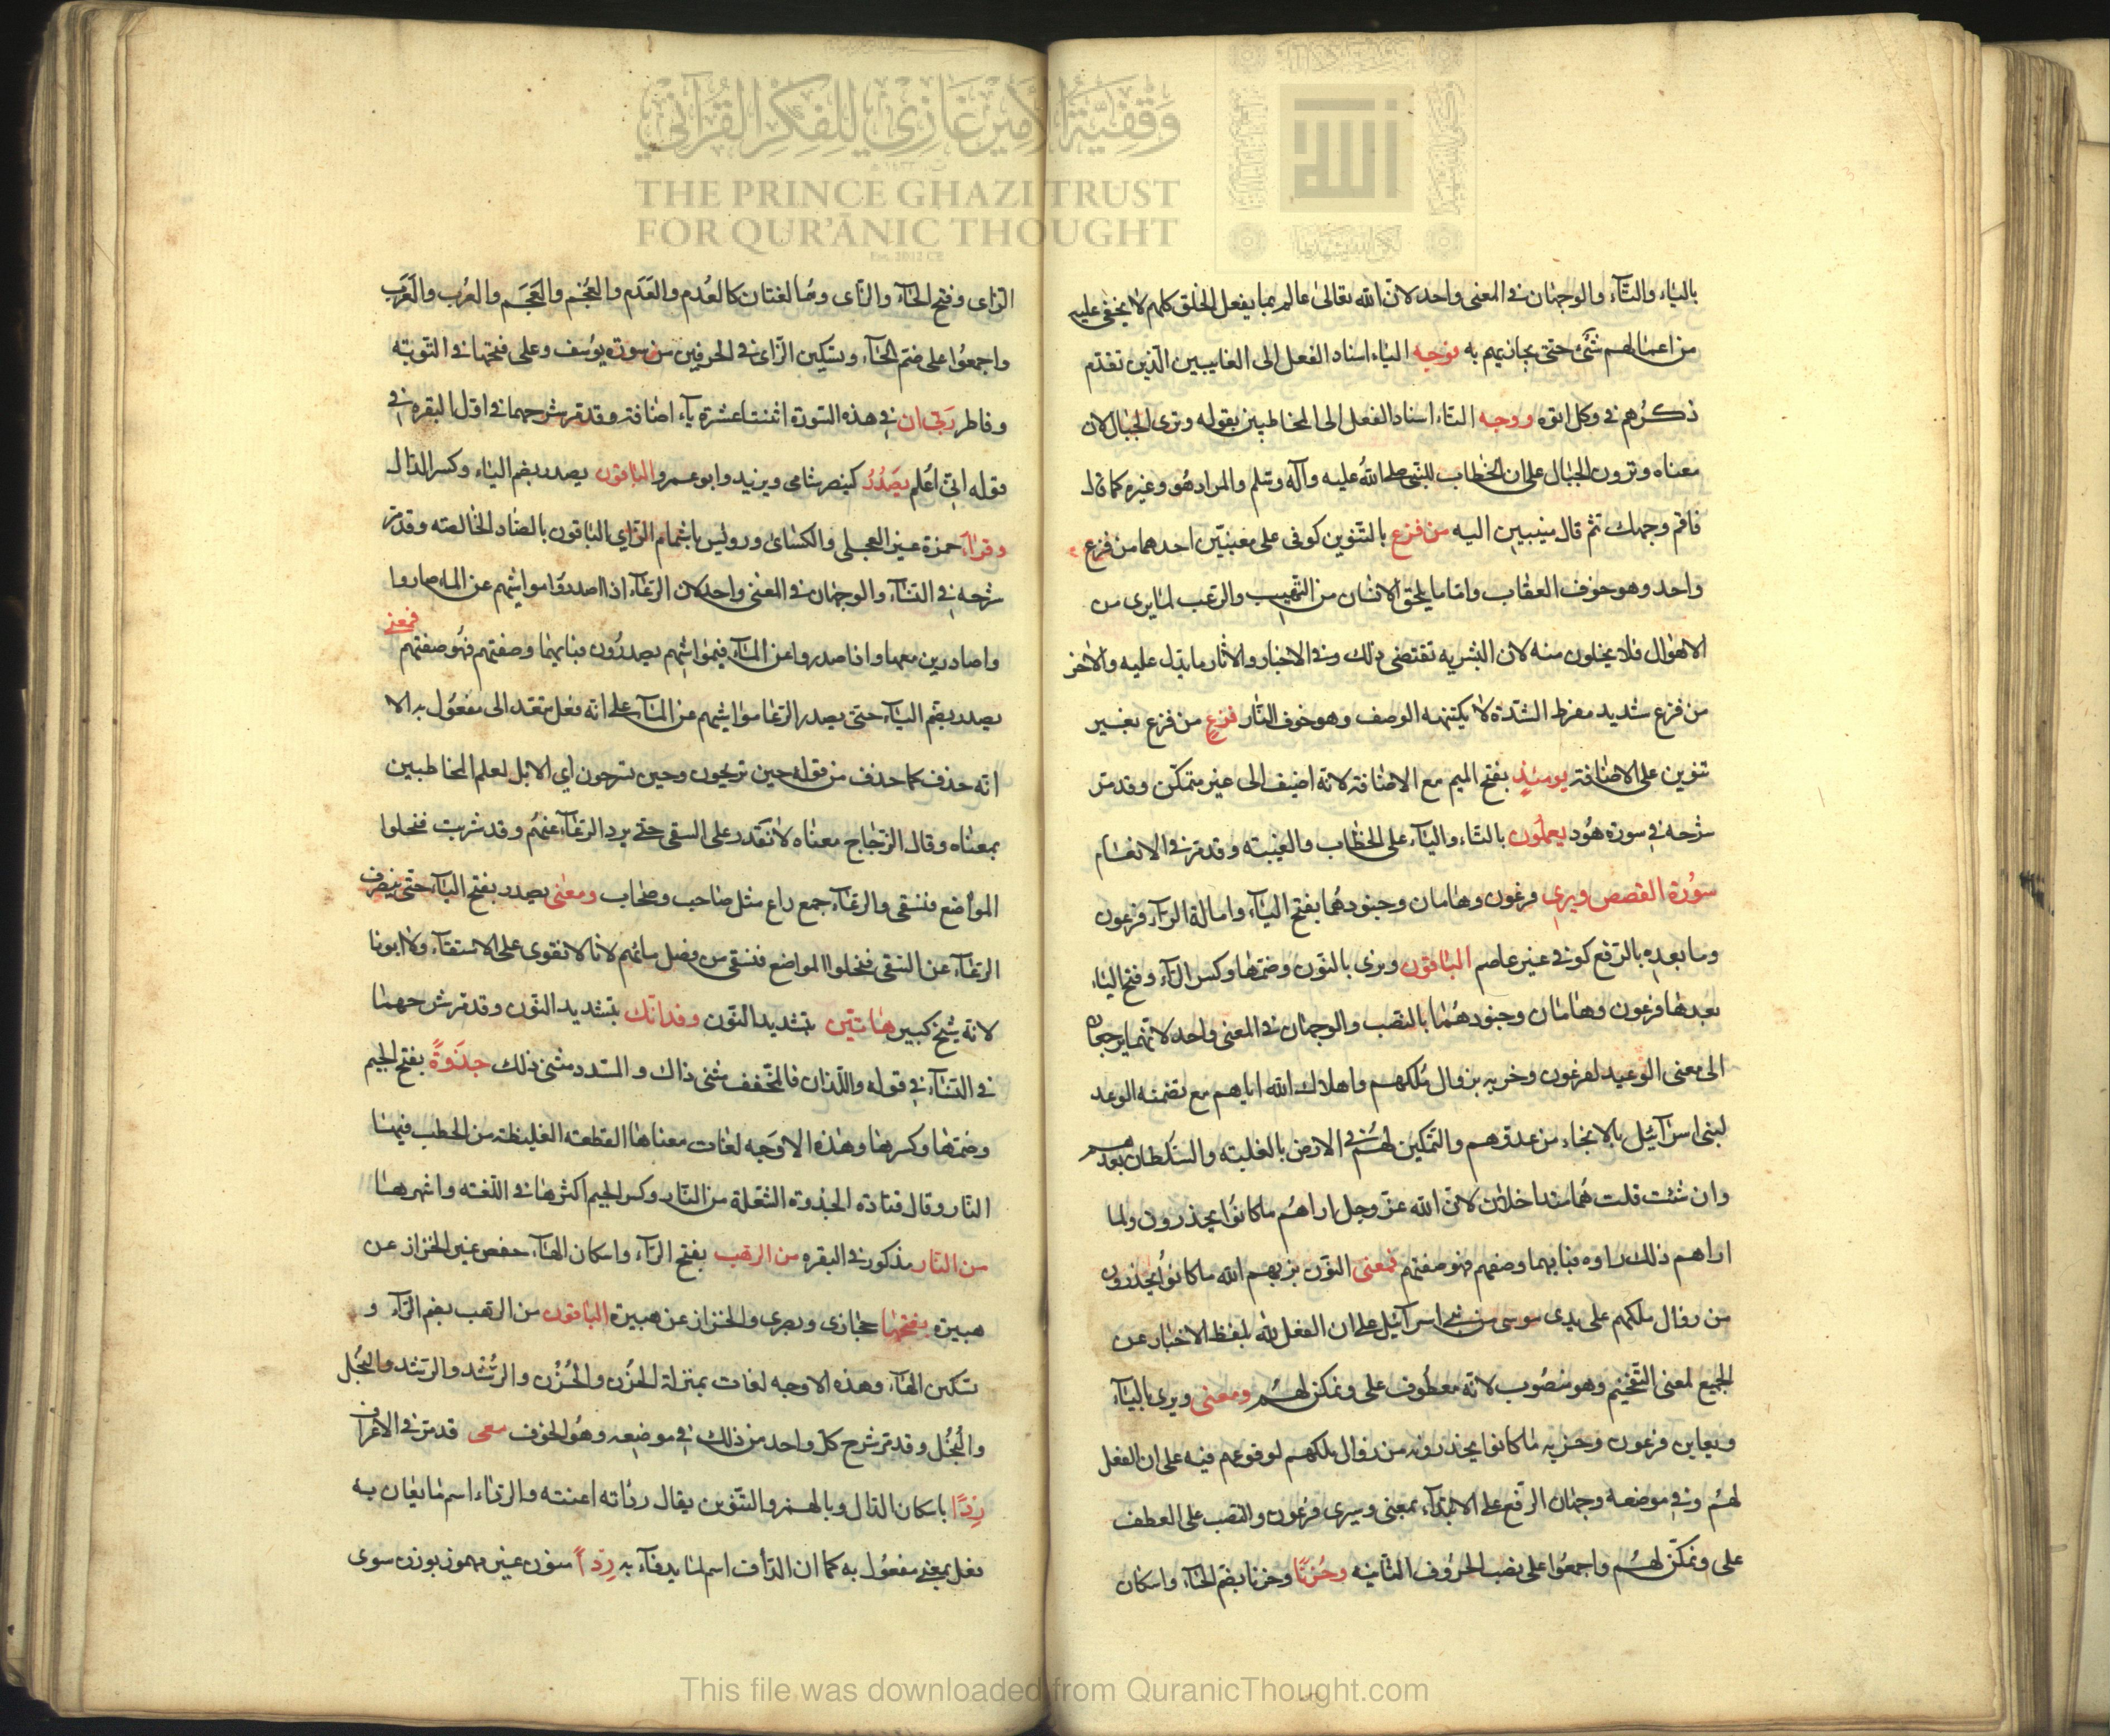 وقفية الأمير غازي للفكر القرآني
THE PRINCE GHAZI TRUST
FOR QUR'ĀNIC THOUGHT
بالياء والتاء والوجهان في المعنى واحد لان الله تعالى عالم بما يفعل الخلق كلهم لا يخفى عليه
من اعمالهم شئ حتى يجازيهم به فوجه الياء اسناد الفعل الى الغايبين الذين تقدم
ذكرهم في وكل اتوه ووجه التاء اسناد الفعل الى المخاطبين بقوله وترى الجبال لان
معناه وترون الجبال على ان الخطاب للنبي صلى الله عليه وآله وسلم والمراد هو وغيره كما قال
فاقم وجهك ثم قال منيبين اليه من فزع بالتنوين كوفى على معنيين احدهما من فزع
واحد وهو خوف العقاب واما ما يلحق الانسان من التهيب والرعب لما يرى من
الاهوال فلا يخلون منه لان البشرية تقتضى ذلك وفي الاخبار والاثار ما يدل عليه والاخر
من فزع شديد مفرط الشدة لا يكتنهه الوصف وهو خوف النار فزع من فزع بغير
تنوين على الاضافة يومئذ بفتح الميم مع الاضافة لانه اضيف الى غير متمكن وقد مر
شرحه في سورة هود يعملون بالتاء والياء على الخطاب والغيبته وقد مر في الانعام
سورة القصص ويرى فرعون وهامان وجنودهما بفتح الياء وامالة الراء فرعون
وما بعده بالرفع كوفي غير عاصم الباقون ونرى بالنون وضمها وكسر الراء وفتح الياء
بعدها فرعون وهامان وجنودهما بالنصب والوجهان في المعنى واحد لانهما يرجعان
الى معنى الوعيد لفرعون وحزبه بزوال ملكهم واهلاك الله اياهم مع تضمنه الوعد
لبني اسرآئيل بالانجاء من عدوهم والتمكين لهم في الارض بالغلبته والسلطان بعدهم
وان شئت قلت هما متداخلان لان الله عز وجل اراهم ما كانوا يحذرون ولما
اراهم ذلك راوه فبايهما وصفهم فهو صفتهم فمعنى النون نريهم الله ما كانوا يحذرون
من زوال ملكهم على يدى موسى من بني اسرآئيل على ان الفعل لله بلفظ الاخبار عن
الجميع لمعنى التفخيم وهو منصوب لانه معطوف على ونمكن لهم ومعنى ويرى بالياء
ويعاين فرعون وحزبه ما كانوا يحذرونه من زوال ملكهم لوقوعهم فيه على ان الفعل
لهم وفي موضعه وجهان الرفع على الابتداء بمعنى وسيرى فرعون والنصب على العطف
على ونمكن لهم واجمعوا على نصب الحروف الثانيه وحزنا وحزنا بضم الحاء واسكان
الزاى وفتح الحاء والزاى وهما لغتان كالعدم والعدم والعجم والعجم والعرب والعرب
واجمعوا على ضم الحاء وتسكين الزاى في الحرفين من سورة يوسف وعلى فتحها في التوبته
وفاطر ربى ان في هذه السورة اثنتا عشرة ياء اضافة وقد مر شرحها في اول البقره في
قوله انى اعلم يصدر كينصر شامى ويزيد وابو عمرو الباقون يصدر بضم الياء وكسر الدال
وقرا حمزة غير العجلى والكسائ ورويس باشمام الزاي الباقون بالصاد الخالصته وقد مر
شرحه في النساء والوجهان في المعنى واحد لان الرعاء اذا اصدروا مواشيهم عن الماء صاروا
واصادرين معها واذا صدروا عن الماء فبمواشيهم يصدرون فبايهما وصفتهم فهو صفتهم
فمعنى
يصدر بضم الياء حتى يصدر الرعا مواشيهم عن الماء على انه فعل متعد الى مفعول به الا
انه حذف كما حذف من قوله حين تريحون وحين تسرحون اي الابل لعلم المخاطبين
بمعناه وقال الزجاج معناه لا نقدر على السقى حتى يرد الرعاء غنمهم وقد شربت فنخلوا
المواضع فنسقى والرعاء جمع راع مثل صاحب وصحاب ومعنى يصدر بفتح الياء حتى ينصرف
الرعاء عن السقى فنخلوا المواضع فنسقى من فضل مائهم لانا لا نقوى على الاستقاء ولا ابونا
لانه شيخ كبير هاتين بتشديد النون وفذانك بتشديد النون وقد مر شرحهما
في النساء في قوله واللذان فالمخفف مثنى ذاك والمشدد مثنى ذلك جذوة بفتح الجيم
وضمها وكسرها وهذه الاوجه لغات معناها القطعته الغليظة من الحطب فيها
النار وقال قتادة الجذوة الشعلة من النار وكسر الجيم اكثرها في اللغته واشهرها
من النار مذكور في البقره من الرهب بفتح الراء واسكان الهاء حفص غير الخزاز عن
هبيرة بفتحها حجازى وبصرى والخزاز عن هبيرة الباقون من الرهب بضم الراء و
تسكين الهاء وهذه الاوجه لغات بمنزلة الحزن والحزن والرشد والرشد والبخل
والبخل وقد مر شرح كل واحد من ذلك في موضعه وهو الخوف معى قد مر في الاعراف
ردءا باسكان الدال وبالهمز والتنوين يقال رداته اعنته والرداء اسم ما يعان به
فعل بمعنى مفعول به كما ان الدأف اسم لما يدفاء به ردا منون غير مهموز بوزن سوى
This file was downloaded from QuranicThought.com